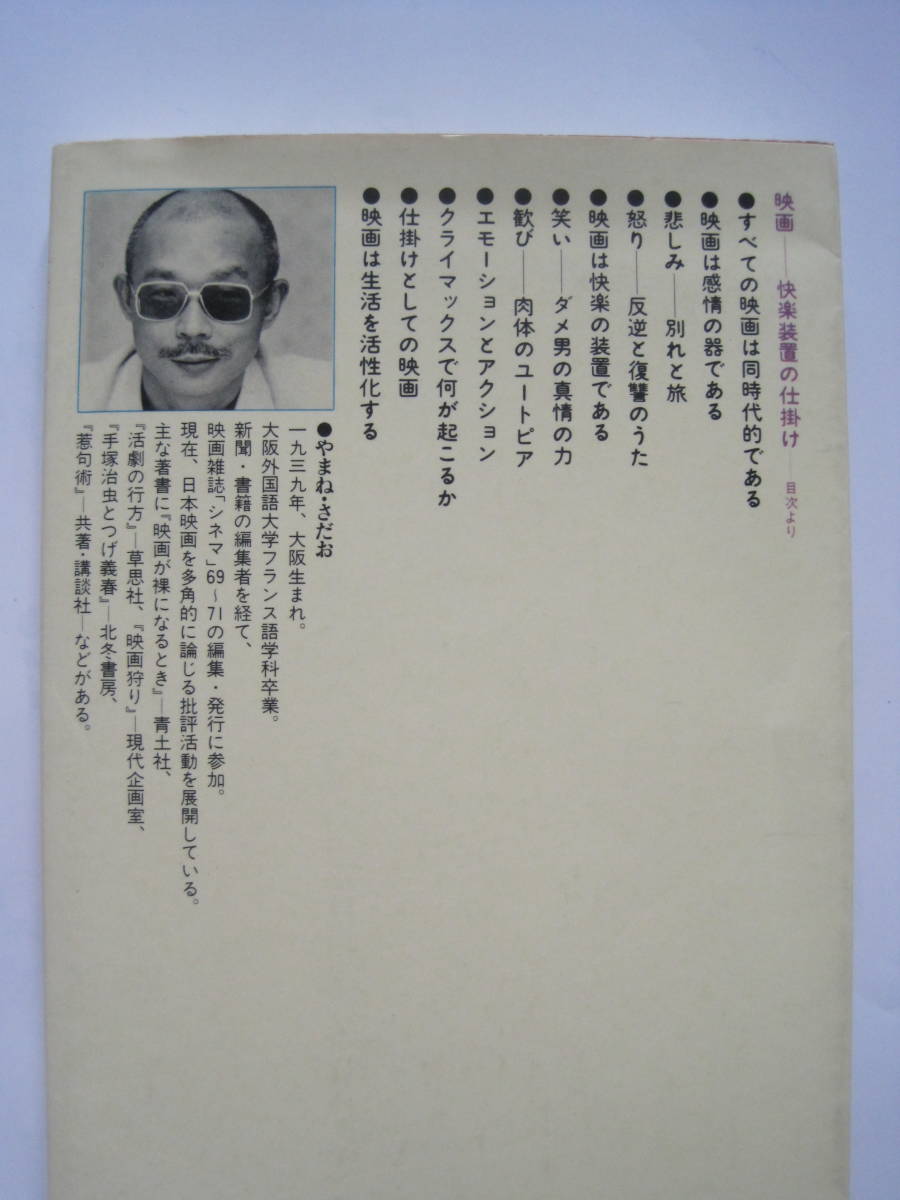 映画——快楽装置の仕掛け——目次より
●すべての映画は同時代的である
●映画は感情の器である
●悲しみ——別れと旅
●怒り——反逆と復讐のうた
●映画は快楽の装置である
●笑い——ダメ男の真情の力
●歓び——肉体のユートピア
●エモーションとアクション
●クライマックスで何が起こるか
●仕掛けとしての映画
●映画は生活を活性化する
●やまね・さだお
一九三九年、大阪生まれ。
大阪外国語大学フランス語学科卒業。
新聞・書籍の編集者を経て、
映画雑誌「シネマ」69〜71の編集・発行に参加。
現在、日本映画を多角的に論じる批評活動を展開している。
主な著書に『映画が裸になるとき』—青土社、
『活劇の行方』—草思社、『映画狩り』—現代企画室、
『手塚治虫とつげ義春』—北冬書房、
『惹句術』—共著・講談社—などがある。